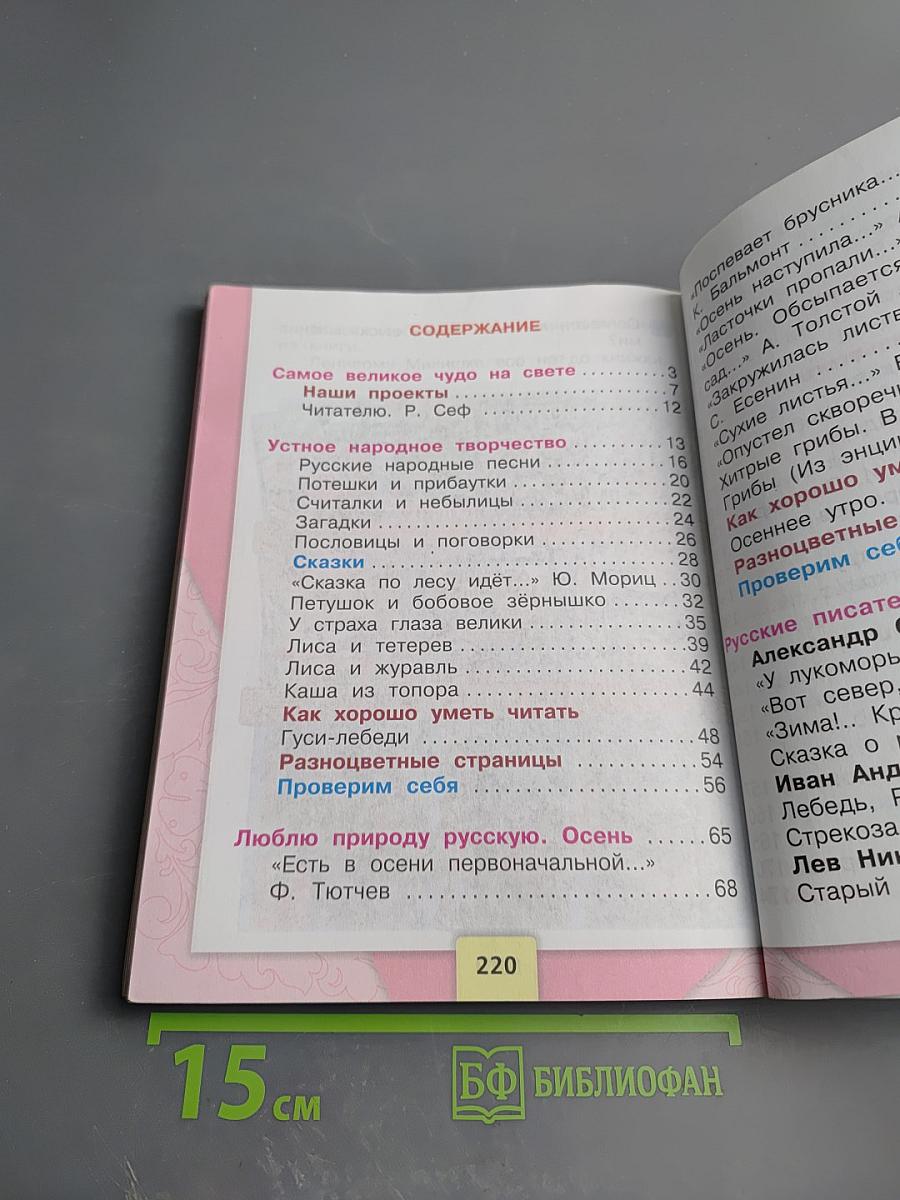 СОДЕРЖАНИЕ
Самое великое чудо на свете ..........3
Наши проекты ..........................7
Читателю. Р. Сеф ....................12
Устное народное творчество ...........13
Русские народные песни .............16
Потешки и прибаутки ................20
Считалки и небылицы ................22
Загадки ...............................24
Пословицы и поговорки ..............26
Сказки ................................28
«Сказка по лесу идёт...» Ю. Мориц ..30
Петушок и бобовое зёрнышко .......32
У страха глаза велики ................35
Лиса и тетерев .......................39
Лиса и журавль ......................42
Каша из топора ......................44
Как хорошо уметь читать
Гуси-лебеди ..........................48
Разноцветные страницы .............54
Проверим себя ......................56
Люблю природу русскую. Осень ......65
«Есть в осени первоначальной...»
Ф. Тютчев ............................68
220
«Поспевает брусника...
К. Бальмонт ..........
«Осень наступила...»
«Ласточки пропали...»
«Осень. Обсыпается
сад...» А. Толстой
«Закружилась листв
С. Есенин ........
«Сухие листья...»
«Опустел скворечн
Хитрые грибы. В
Грибы (Из энци
Как хорошо ум
Осеннее утро.
Разноцветные
Проверим себ
Русские писате
Александр
«У лукоморь
«Вот север,
«Зима!.. Кр
Сказка о
Иван Анд
Лебедь,
Стрекоза
Лев Ник
Старый
15 см
БФ БИБЛИОФАН